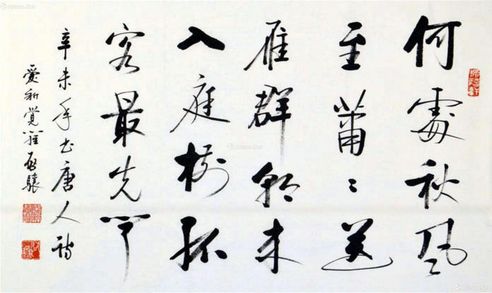 何處秋風
至蕭〻送
雁群朝来
入庭樹孤
客最先聞
辛未年书唐人詩
愛新覺羅啟驤